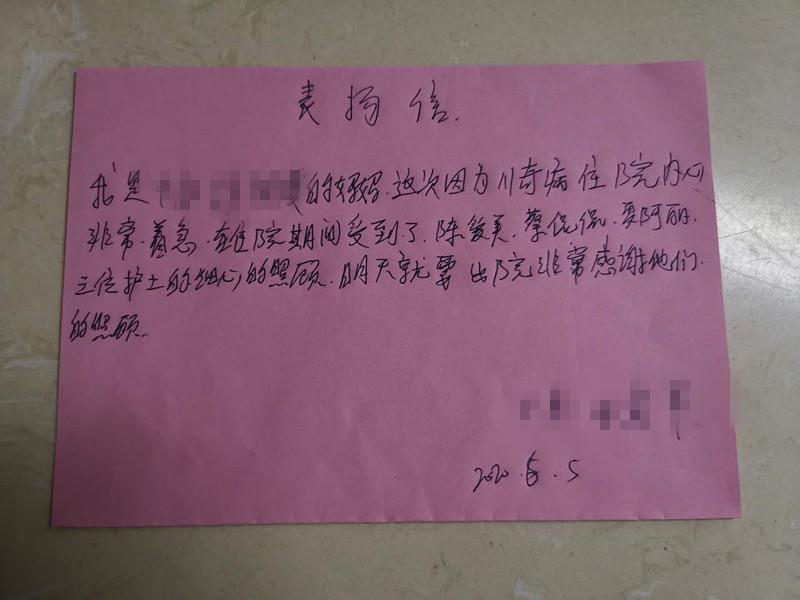 表扬信.
我是的妈妈.这次因为川奇病住院内心
非常着急.在住院期间受到了.陈爱美.蔡侃侃.夏阿丽.
三位护士的细心的照顾.明天就要出院非常感谢他们.
的照顾.
2020.6.5